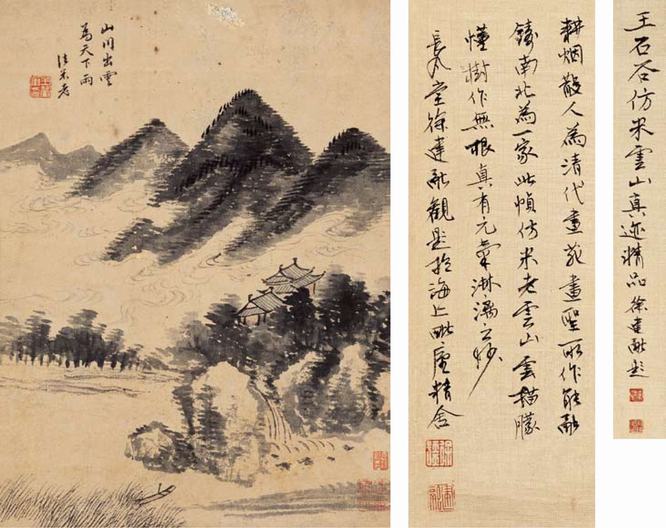 山川出雲
為天下雨
法米老
王石谷仿米雲山真迹精品 徐建融題
耕烟散人為清代畫苑畫聖所作能融
鑄南北為一家此幀仿米老雲山雲描朦
慬樹作無根真有元氣淋漓之妙
長風堂徐建融觀題於海上毗廬精舍